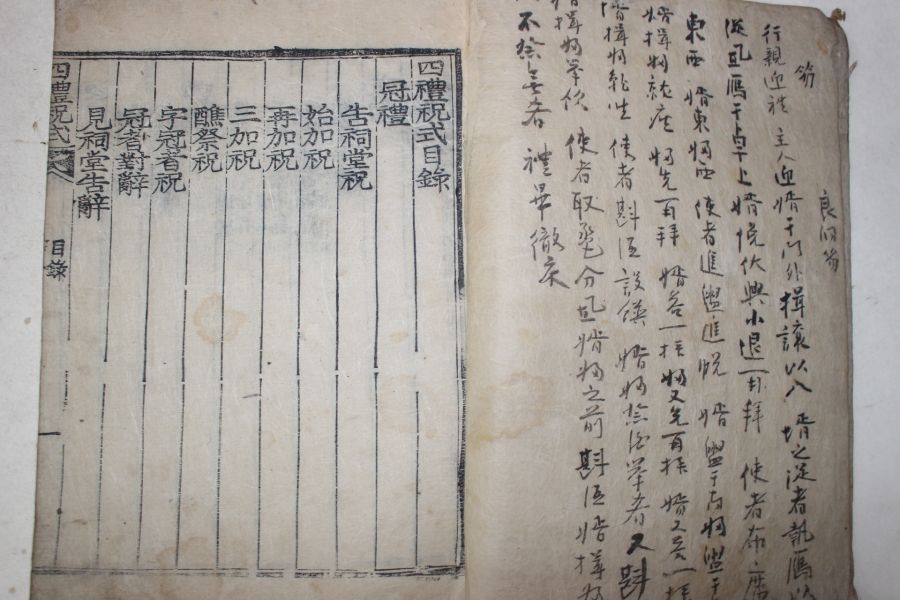 笏
行親迎禮 主人迎婿于門外揖讓以入 婿之從者執鴈
從 鴈于卓上 婿俛伏興小退再拜 使者布席
東西 婿東婦西 使者進盥進帨 婿盥于南婦盥于
婿揖婦就座 婦先再拜 婿答一拜 婦又先再拜 婿又答一拜
婿揖婦就坐 使者斟酒設饌 婿婦祭酒舉肴 又斟
婿揖婦舉飮 使者取巹分置婿婦之前 斟酒 婿揖婦
不祭無肴 禮畢徹床
四禮祝式目錄
冠禮
告祠堂祝
始加祝
再加祝
三加祝
醮祭祝
字冠者祝
冠者對辭
見祠堂告辭
四禮祝式 目錄 一